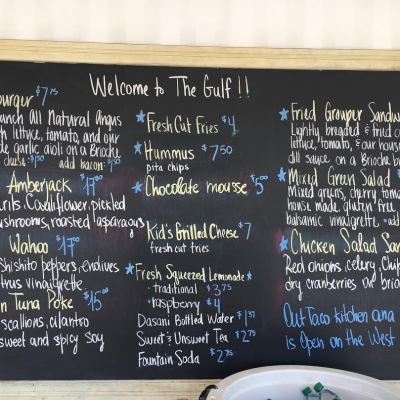 Welcome to The Gulf!!
burger $7.75
Ranch All Natural Angus
lettuce, tomato, and our
garlic aioli on a Brioche
cheese $1.50 add bacon
Amberjack
Cauliflower, pickled
mushrooms, roasted asparagus
Wahoo
Shishito peppers, endives
citrus vinaigrette
Tuna Poke $15.00
scallions, cilantro
sweet and spicy soy
Fresh Cut Fries $4
Hummus $7.50
pita chips
Chocolate mousse $5.00
Kid's Grilled Cheese $7
fresh cut fries
Fresh Squeezed Lemonade
·traditional $3.75
·raspberry $4
Dasani Bottled Water
Sweet & Unsweet Tea $2.75
Fountain Soda $2.75
Fried Grouper Sandw
Lightly breaded & fried
lettuce, tomato, & our hous
dill sauce on a Brioche b
Mixed Green Salad
Mixed greens, cherry toma
house made, gluten free
balsamic vinaigrette
Chicken Salad San
Red onions, celery, Chi
dry cranberries
Our Taco kitchen and
Is Open on the West